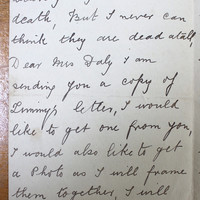 death, But I never can
think they are dead atall,
Dear Mrs Daly I am
sending you a copy of
Jimmy's letter, I would
like to get one from you,
I would also like to get
a Photo as I will frame
them together, I will